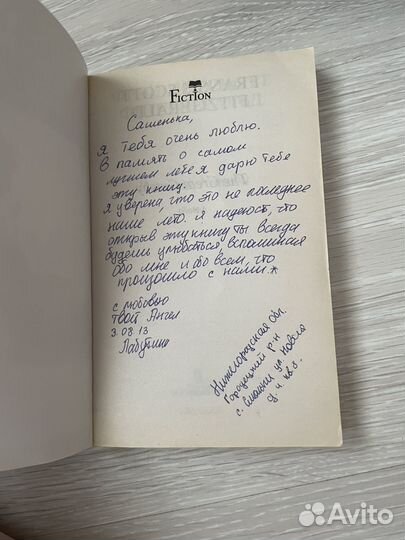 FICTION
Сашенька,
Я тебя очень люблю.
В память о самом
лучшем лете я дарю тебе
эту книгу.
Я уверена, что это не последнее
наше лето. Я надеюсь, что
открыв эту книгу ты всегда
будешь улыбаться, вспоминая
обо мне и обо всем, что
произошло с нами.*
с любовью
твой Ангел
3.08.13
Нижегородская обл.
Городецкий р-н
с. ул. Новая
д. 4 кв 8.
Avito